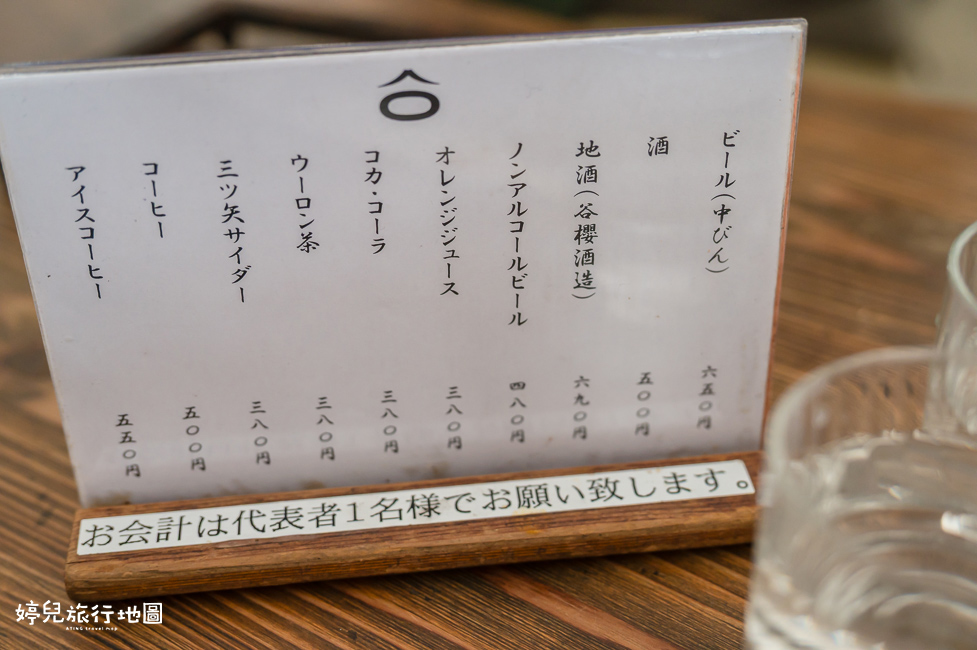 ビール(中びん) 六五〇円
酒 五〇〇円
地酒(谷櫻酒造) 六九〇円
ノンアルコールビール 四八〇円
オレンジジュース 三八〇円
コカ・コーラ 三八〇円
ウーロン茶 三八〇円
三ツ矢サイダー 三八〇円
コーヒー 五〇〇円
アイスコーヒー 五五〇円
お会計は代表者1名様でお願い致します。
婷兒旅行地圖
ATING travel map